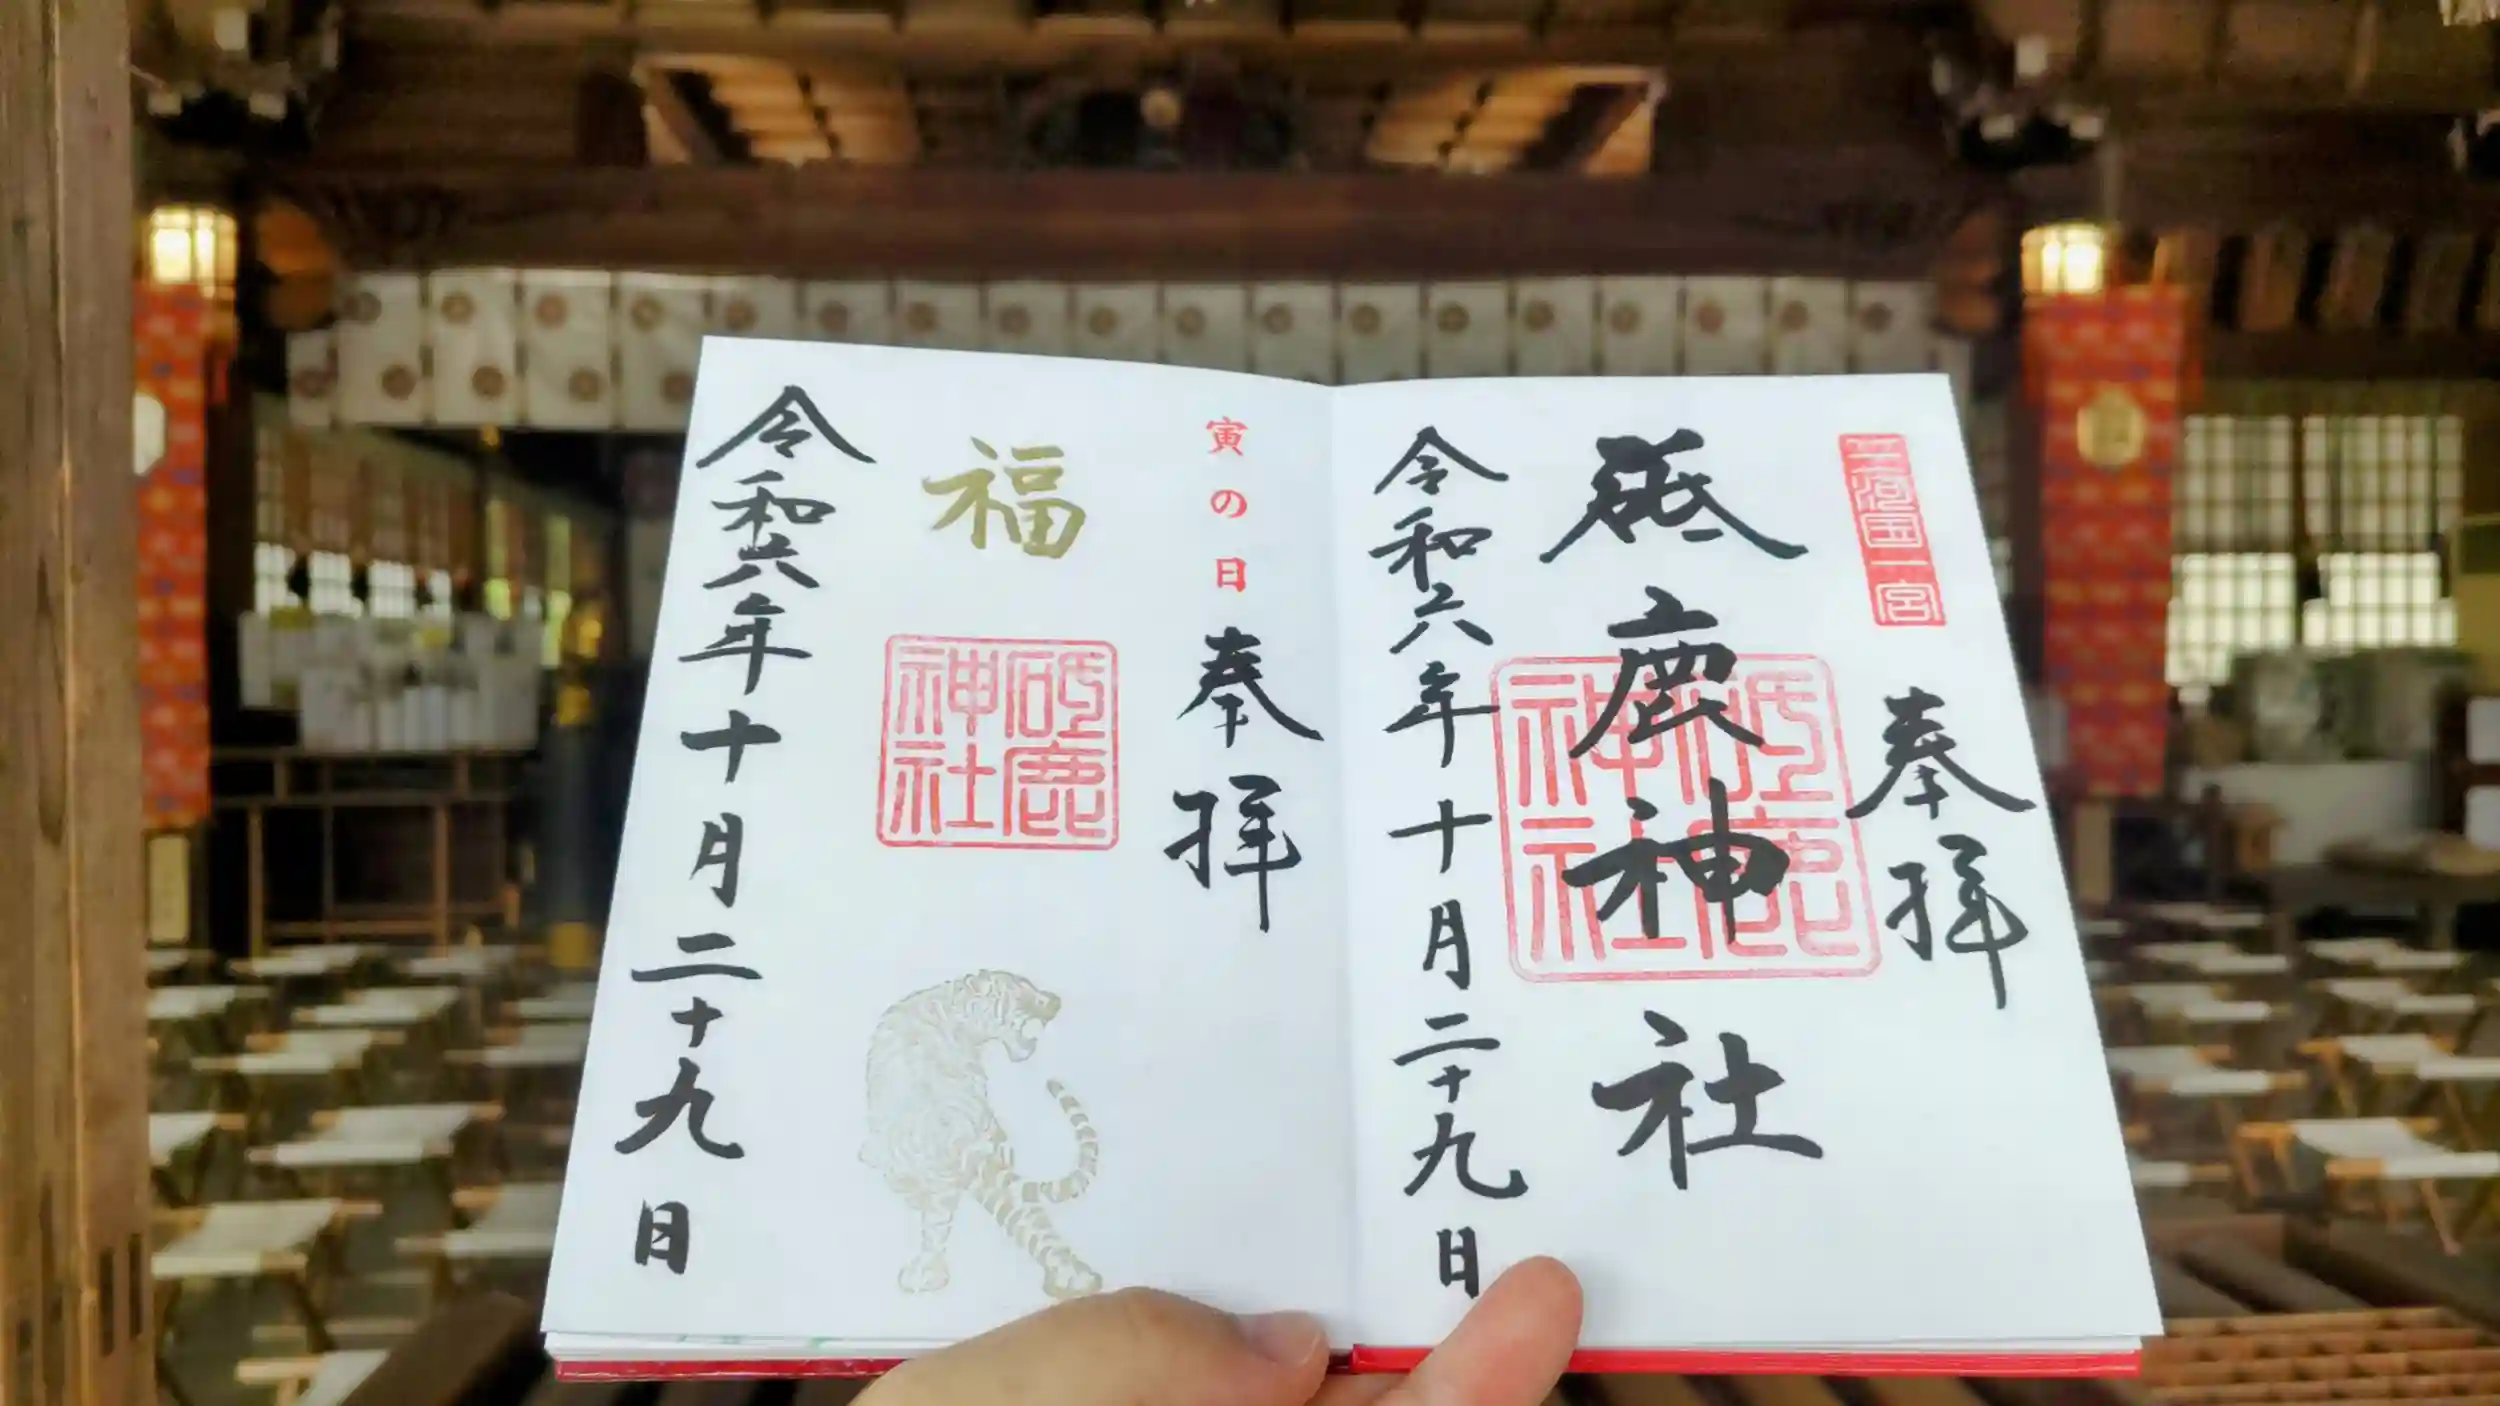 三河国一宮
奉拝
砥鹿神社
砥鹿神社
令和六年十月二十九日
寅の日
奉拝
福
砥鹿神社
令和六年十月二十九日